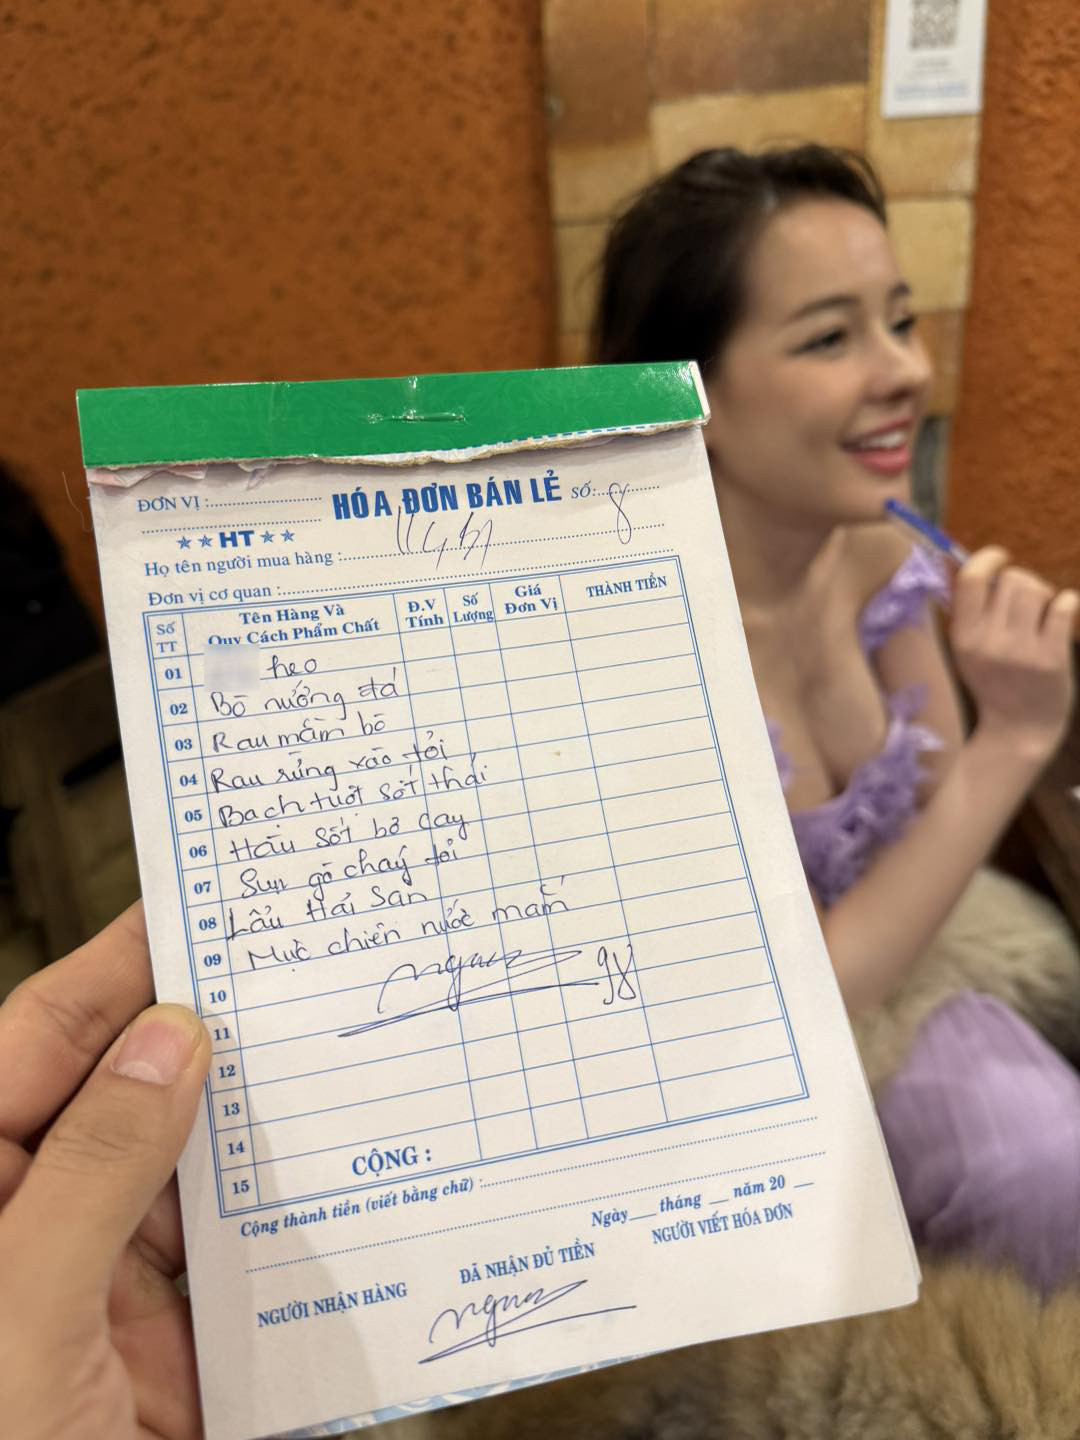 ĐƠN VỊ :
HÓA ĐƠN BÁN LẺ
SỐ: 8
HT
Họ tên người mua hàng :
Đơn vị cơ quan :
Số TT
Tên Hàng Và Quy Cách Phẩm Chất
Đ.V Tính
Số Lượng
Giá Đơn Vị
THÀNH TIỀN
01 heo
02 Bò nướng đá
03 Rau mầm bò
04 Rau rừng xào tỏi
05 Bạch tuột sốt thái
06 Hàu sốt bơ cay
07 Sụn gà cháy tỏi
08 Lẩu Hải Sản
09 Mực chiên nước mắm
10
11
12
13
14
15
CỘNG :
Cộng thành tiền (viết bằng chữ) :
Ngày tháng năm 20
NGƯỜI NHẬN HÀNG
ĐÃ NHẬN ĐỦ TIỀN
NGƯỜI VIẾT HÓA ĐƠN